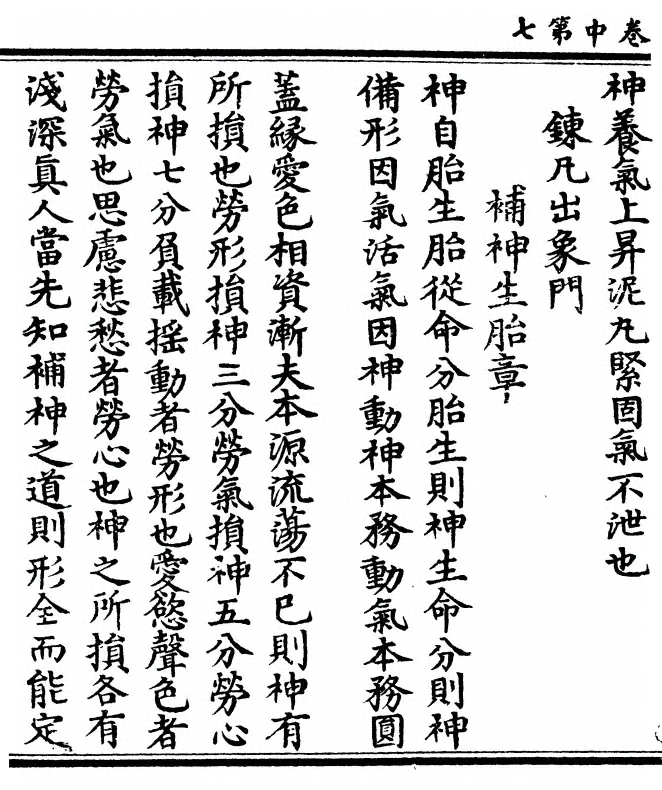 卷中第七
神養氣上昇泥丸緊固氣不泄也
鍊凡出象門
補神生胎章
神自胎生胎從命分胎生則神生命分則神
備形因氣活氣因神動神本務動氣本務圓
蓋緣愛色相資漸夫本源流蕩不已則神有
所損也勞形損神三分勞氣損神五分勞心
損神七分負載揺動者勞形也愛慾聲色者
勞氣也思慮悲愁者勞心也神之所損各有
淺深眞人當先知補神之道則形全而能定